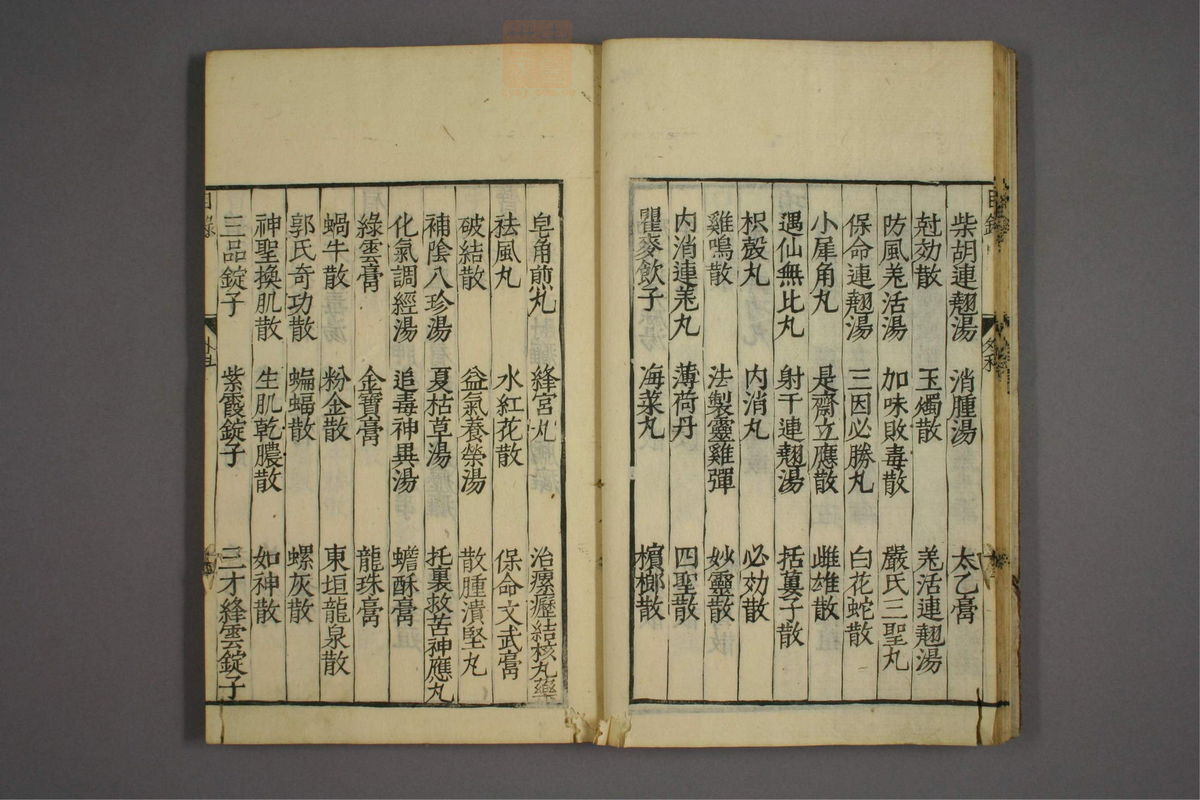 目錄
柴胡連翹湯 消腫湯 太乙膏
尅効散 玉燭散 羗活連翹湯
防風羗活湯 加味敗毒散 嚴氏三聖丸
保命連翹湯 三因必勝丸 白花蛇散
小犀角丸 是齋立應散 雌雄散
遇仙無比丸 射干連翹湯 括蔞子散
枳殼丸 內消丸 必効散
雞鳴散 法製靈雞彈 妙靈散
內消連羗丸 薄荷丹 四聖散
瞿麥飲子 海菜丸 檳榔散
皂角煎丸 縫宮丸 治瘰癧結核丸藥
祛風丸 水紅花散 保命文武膏
破結散 益氣養榮湯 散腫潰堅丸
補陰八珍湯 夏枯草湯 托裏救苦神應丸
化氣調經湯 追毒神異湯 蟾酥膏
綠雲膏 金寶膏 龍珠膏
蝸牛散 粉金散 東垣龍泉散
郭氏奇功散 蝙蝠散 螺灰散
神聖換肌散 生肌乾膿散 如神散
三品錠子 紫霞錠子 三才絳雲錠子
目錄